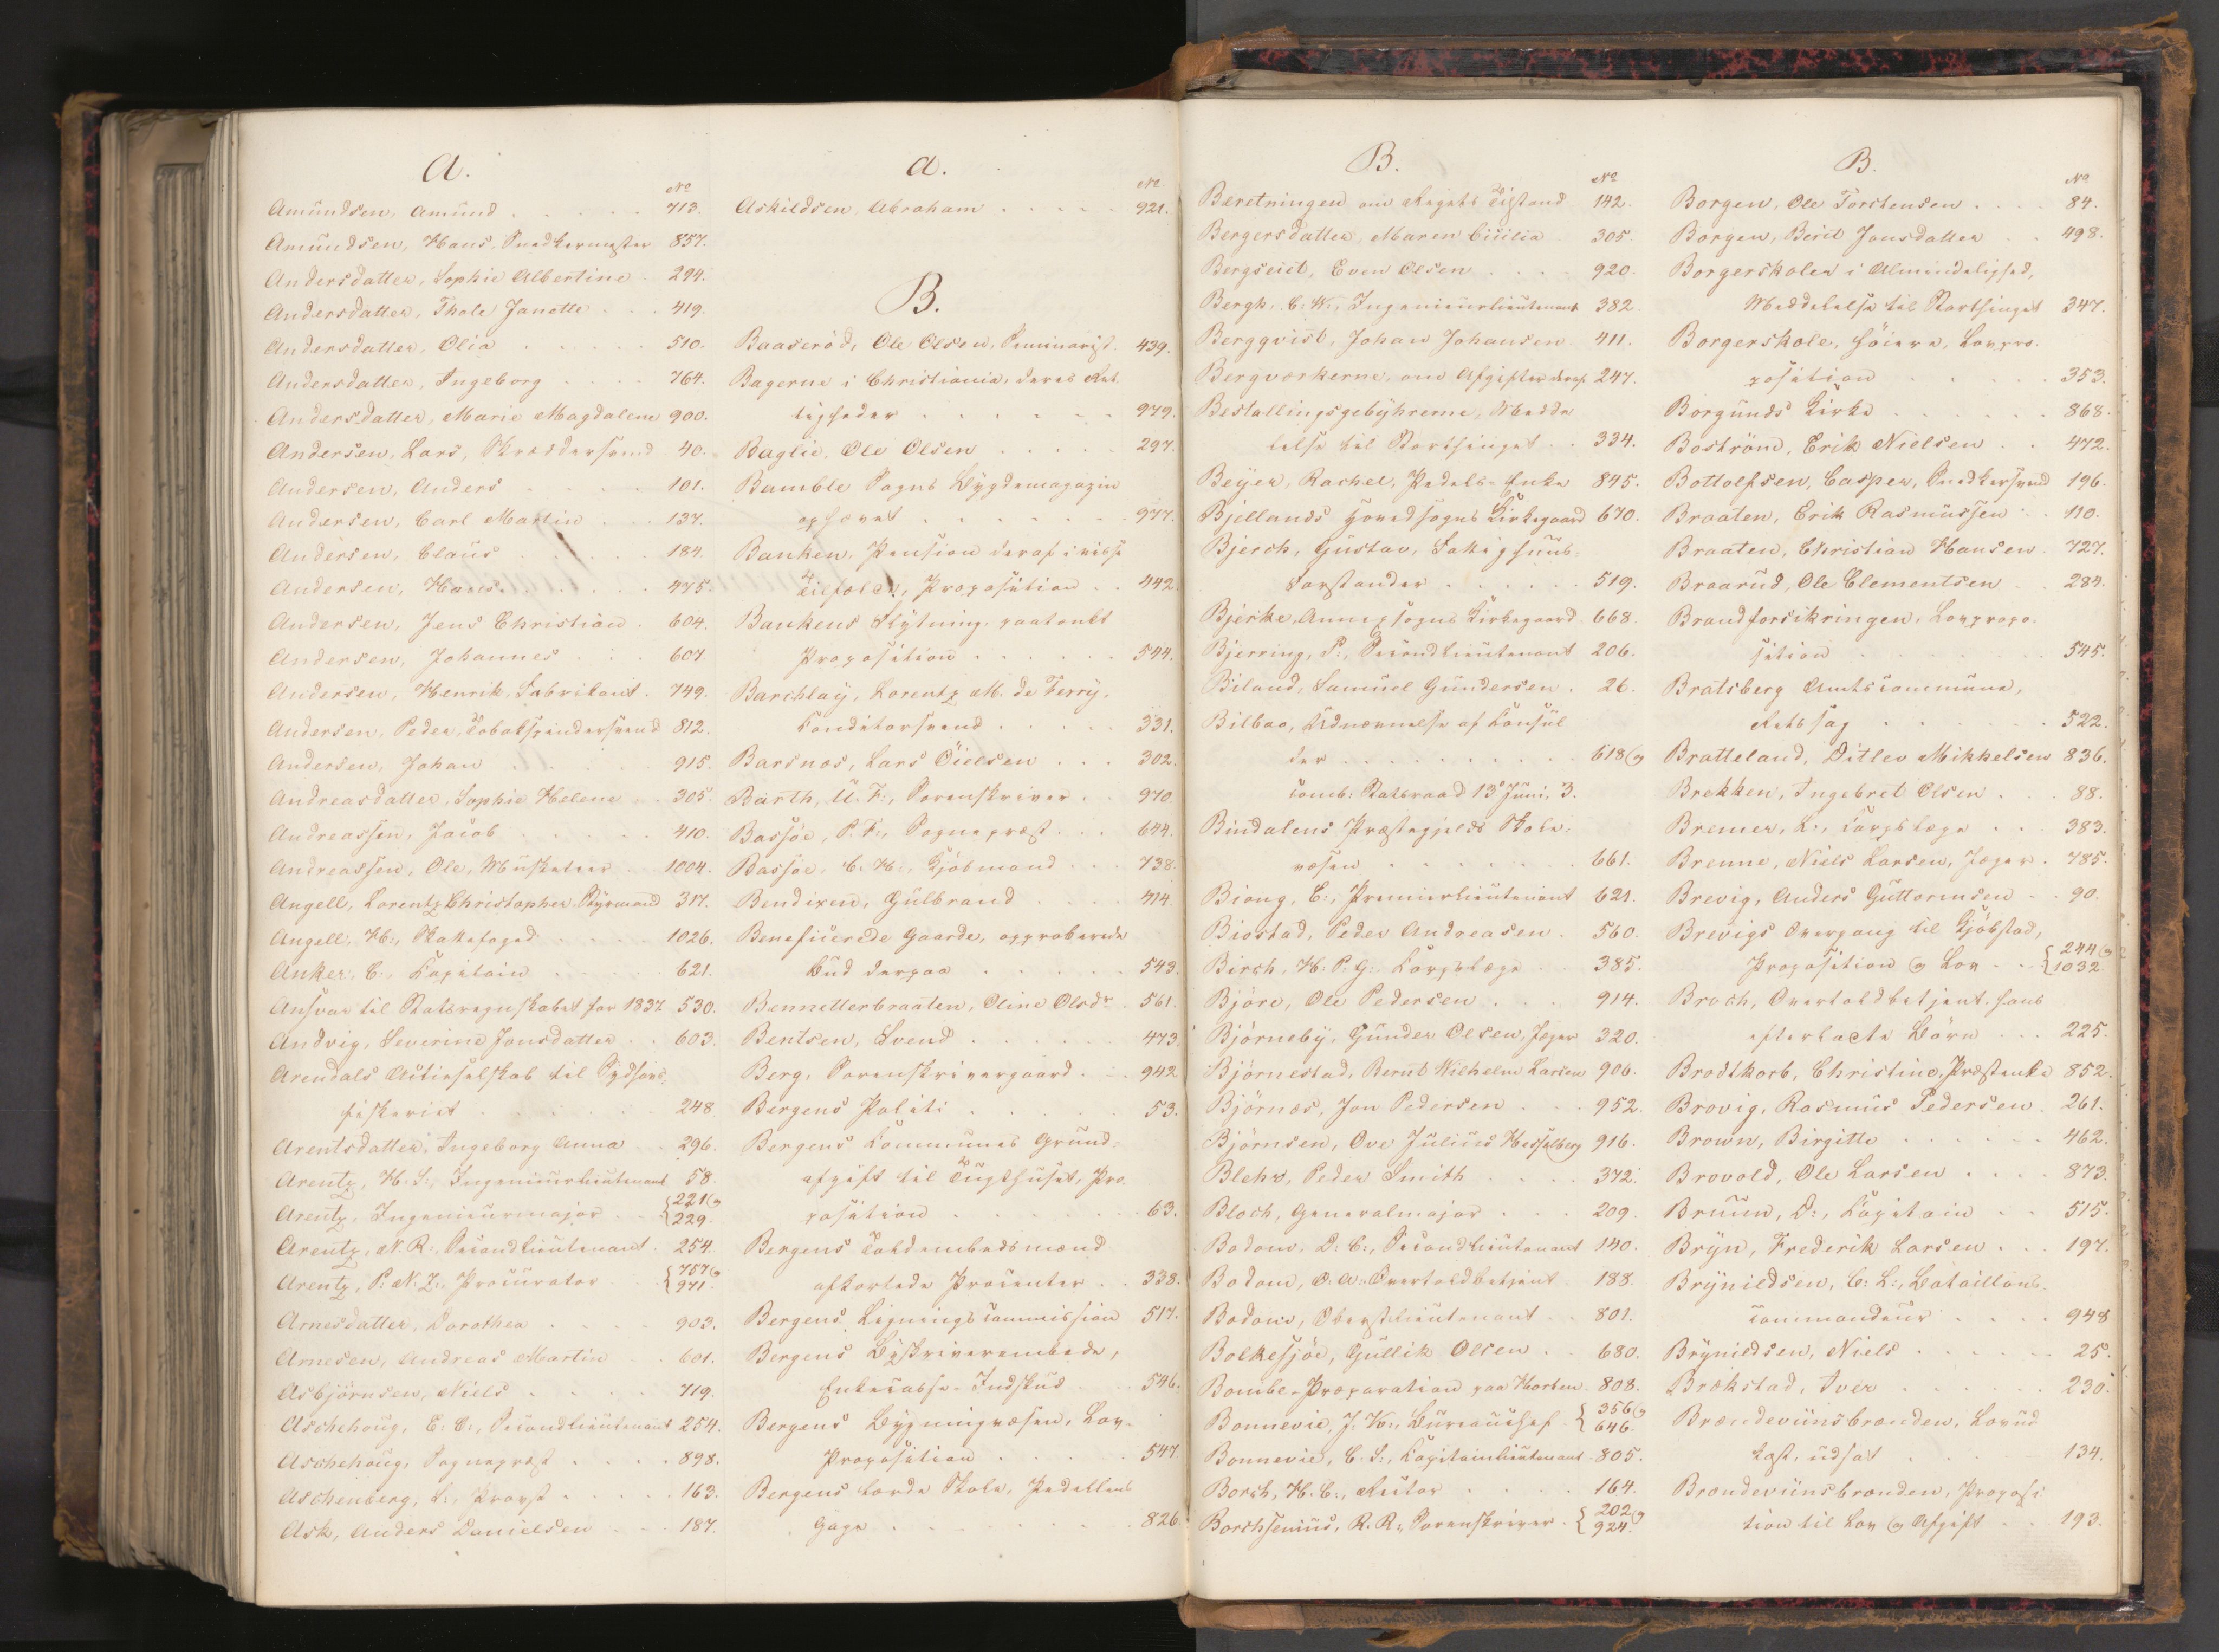 A.
No
Amundsen, Amund . . . . . 713.
Amundsen, Hans, Snedkermester 857.
Andersdatter, Sophie Albertine . 294.
Andersdatter, Thale Janette . . . 419.
Andersdatter, Olia . . . . . 510.
Andersdatter, Ingeborg . . . . 764.
Andersdatter, Marie Magdalene 900.
Andersen, Lars, Skreddersvend 40.
Andersen, Anders . . . . . 101.
Andersen, Carl Martin . . . 137.
Andersen, Claus . . . . . 184.
Andersen, Hans . . . . . 475.
Andersen, Jens Christian . 604.
Andersen, Johannes . . . 607
Andersen, Henrik, Fabrikant . 749.
Andersen, Peder, Tobakspindersvend 812.
Andersen, Johan . . . . . 915.
Andreasdatter, Sophie Helene . . 305.
Andreassen, Jacob . . . . . 410.
Andreassen, Ole, Musketeer . . 1004.
Angell, Lorentz Christopher, Styrmand 317.
Angell, H:, Skattefoged . . . . 1026.
Anker, C:, Kapitain . . . . 621.
Ansvar til Statsregnskabet for 1837 530.
Andvig, Severine Jonsdatter . . 603.
Arendals Actieselskab til Sydhavs-
fiskeriet . . . . . . 248.
Arentsdatter, Ingeborg Anna . . 296.
Arentz, H. S:, Ingenieurlieutenant 58.
Arentz, Ingenieurmajor . . { 221 og
229.
Arentz, N. R:, Secondlieutenant . 254.
Arentz, P: N. Z:, Procurator . . { 757 og
971.
Arnesdatter, Dorothea . . . . 903.
Arnesen, Andreas Martin . . 601.
Asbjörnsen, Niels . . . . . 719.
Aschehoug, E: O:, Secondlieutenant 254.
Aschehoug, Sognepræst . . . . 898.
Aschenberg, L:, Provst . . . . . 163.
Ask, Anders Danielsen . . . 187.
A.
No
Askildsen, Abraham . . . . . 921.
B.
Baaserød, Ole Olsen, Seminarist. 439.
Bagerne i Christiania, deres Ret-
tigheder . . . . . . . 979.
Baglie, Ole Olsen . . . . . 297.
Bamble Sogns Bygdemagazin
ophævet . . . . . . . 977.
Banken, Pension deraf i visse
Tilfælde, Proposition . . 442.
Bankens Flytning, paatænkt
Proposition . . . . . . 544.
Barchlay, Lorentz M. de Ferry,
Conditorsvend . . . . . 331.
Barsnes, Lars Öielsen . . . 302.
Barth, U. F:, Sorenskriver . . 970.
Bassøe, P. F:, Sognepræst . . . 644.
Bassøe, C. H:, Kjøbmand . . . 738.
Bendixen, Gulbrand . . . . 414.
Beneficerede Gaarde, approberede
Bud derpaa . . . . . 543.
Bennetterbraaten, Oline Olsdr . 561.
Bentsen, Svend . . . . . . 473.
Berg, Sorenskrivergaard . . . 942.
Bergens Politi . . . . . 53.
Bergens Communes Grund-
afgift til Tugthuset, Pro-
position . . . . . . . 63.
Bergens Toldembedsmænd
afkortede Procenter . . 338.
Bergens Ligningscommission 517.
Bergens Byskriverembede,
Enkecasse-Indskud . . 546.
Bergens Bygningsvæsen, Lov-
Proposition . . . . . 547.
Bergens lærde Skole, Pedellens
Gage . . . . . . . . 826.
B.
No
Beretningen om Rigets Tilstand 142.
Bergersdatter, Maren Cicilia 305.
Bergseiet, Even Olsen . . . . 920.
Bergh, C: W:, Ingenieurlieutenant 382.
Bergqvist, Johan Johansen . 411.
Bergværkerne, om Afgifter deraf 247.
Bestallingsgebyhrerne, Medde-
lelse til Storthinget . . 334.
Beyer, Rachel, Pedels-Enke 845.
Bjellands Hovedsogns Kirkegaard 670.
Bjerch, Gustav, Fattighuus-
forstander . . . . . . 519.
Bjerke Annexsogns Kirkegaard 668.
Bjerring, P:, Secondlieutenant 206.
Biland, Samuel Gundersen . 26.
Bilbao, Udnævnelse af Consul
der . . . . . . . . . 618 og
comb: Statsraad 13de Juni, 3.
Bindalens Præstegjelds Skole-
væsen . . . . . . . 661.
Biong, C:, Premierlieutenant 621.
Biostad, Peder Andreasen . 560.
Birch, H: P. G:, Corpslæge . . 385.
Björe, Ole Pedersen . . . . 914.
Björneby, Gunder Olsen, Jæger 320.
Björnestad, Bernt Wilhelm Larsen 906.
Björnæs, Jon Pedersen . . . 952.
Björnsen, Ove Julius Hesselberg 916.
Blehr, Peder Smith . . . . 372.
Bloch, Generalmajor . . . 209.
Bodom, D: C:, Secondlieutenant 140.
Bodom, O: A:, Overtoldbetjent . 188.
Bodom, Oberstlieutenant . . 801.
Bolkesjöe, Gullik Olsen . . 680.
Bombe-Præparation paa Horten . 808.
Bonnevie, J: K:, Bureauchef . { 356 og
646.
Bonnevie, C. S:, Kapitainlieutenant . 805.
Borch, H. C:, Rector . . . . 164.
Borchsenius, R. R:, Sorenskriver . { 202 og
924.
B.
No
Borgen, Ole Torstensen . . . . 84.
Borgen, Berit Jonsdatter . . 498.
Borgerskoler i Almindelighed,
Meddelelse til Storthinget 347.
Borgerskole, høiere, Lovpro-
position . . . . . . . 353.
Borgunds Kirke . . . . . . 868.
Boström, Erik Nielsen . . 472.
Bottolfsen, Casper, Snedkersvend 196.
Braaten, Erik Rasmussen . . 110.
Braaten, Christian Hansen . 727.
Braarud, Ole Clementsen . 284.
Brandforsikringen, Lovpropo-
sition . . . . . . . 545.
Bratsberg Amtscommune,
Retssag . . . . . . 522.
Bratteland, Ditlev Mikkelsen 836.
Brekken, Ingebret Olsen . . . 88.
Bremer, L:, Corpslæge . . . 383.
Brenne, Niels Larsen, Jæger . 785.
Brevig, Anders Guttormsen . . 90.
Brevigs Overgang til Kjøbstad,
Proposition og Lov . . { 244 og
1032.
Broch, Overtoldbetjent, hans
efterladte Børn . . . 225.
Brodtkorb, Christine, Præsteenke 852.
Brovig, Rasmus Pedersen . 261.
Brown, Birgitte . . . . . . 462.
Brovold, Ole Larsen . . . . 873.
Bruun, D:, Kapitain . . . 515.
Bryn, Frederik Larsen . . . 197.
Brynildsen, C: L:, Bataillons-
commandeur . . . . 948
Brynildsen, Niels . . . . . . 25.
Brækstad, Iver . . . . . . 230.
Brændeviinsbrænden, Lovud-
kast, udsat . . . . . 134.
Brændeviinsbrænden, Proposi-
tion til Lov og Afgift . . 193.